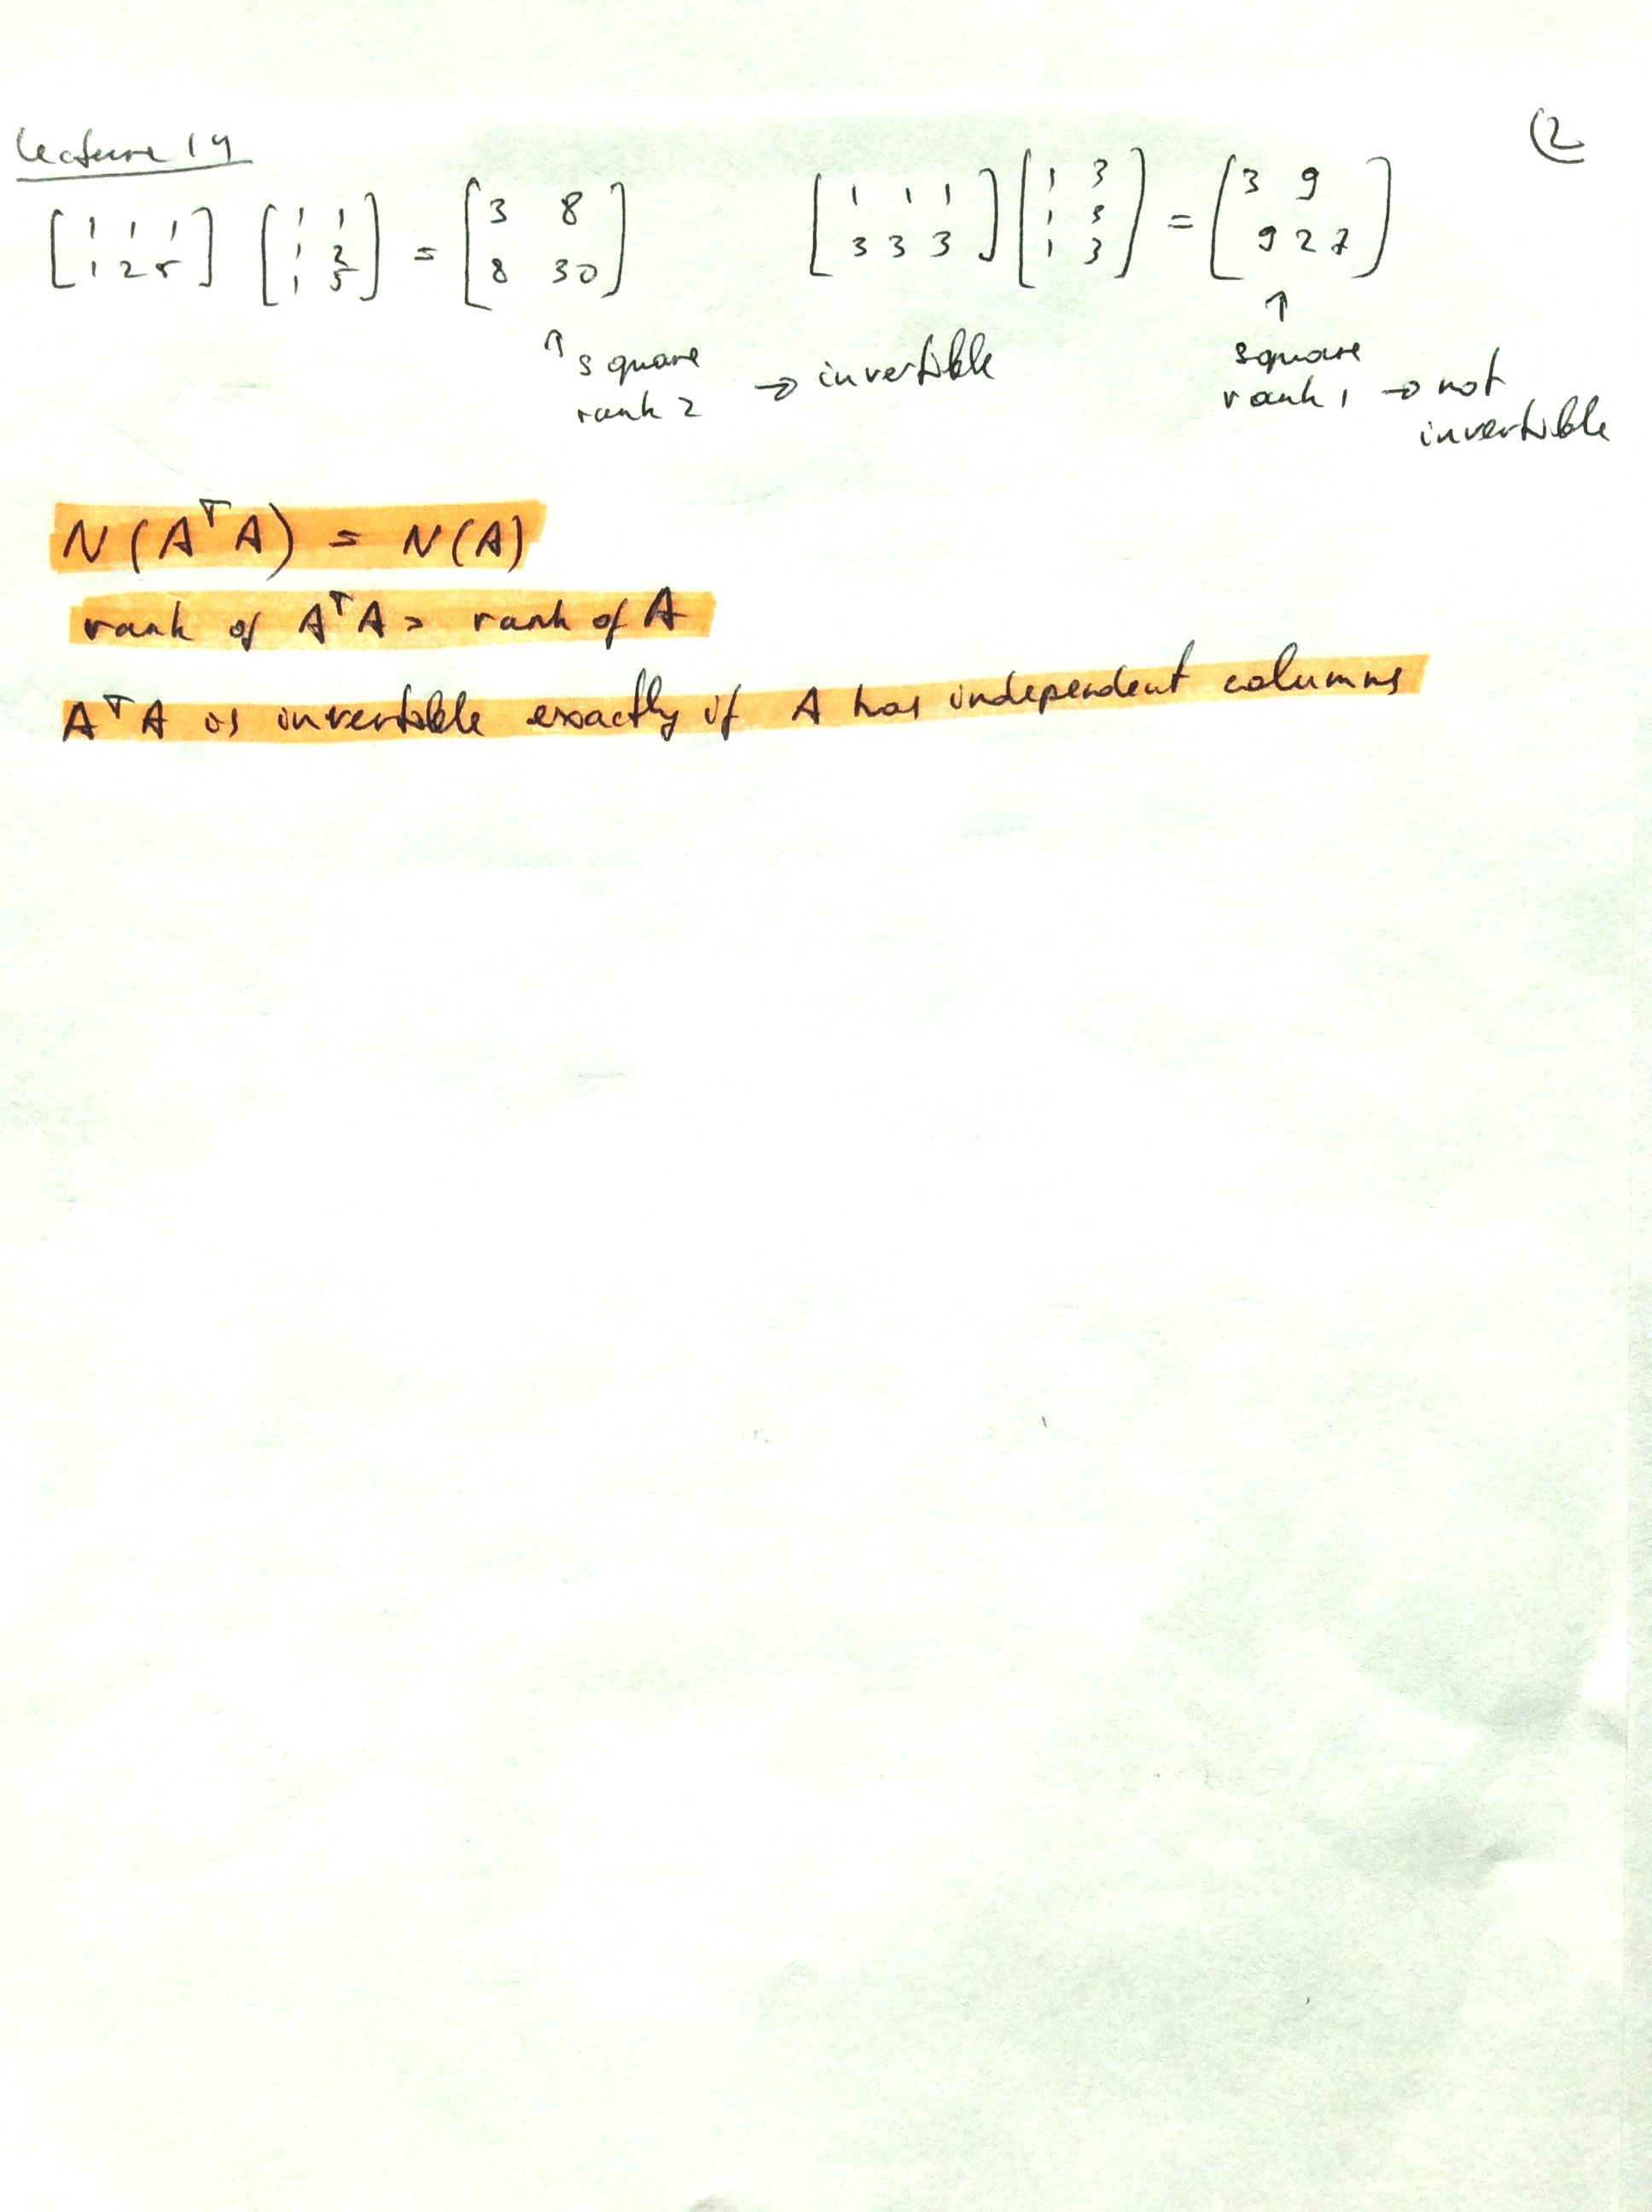 Lecture 14
(2
[1 1 1; 1 2 5] [1 1; 1 2; 1 5] = [3 8; 8 30]
[1 1 1; 3 3 3] [1 3; 1 3; 1 3] = [3 9; 9 27]
↑ square
rank 2 → invertible
↑
square
rank 1 → not
invertible
N(AᵀA) = N(A)
rank of AᵀA = rank of A
AᵀA is invertible exactly if A has independent columns